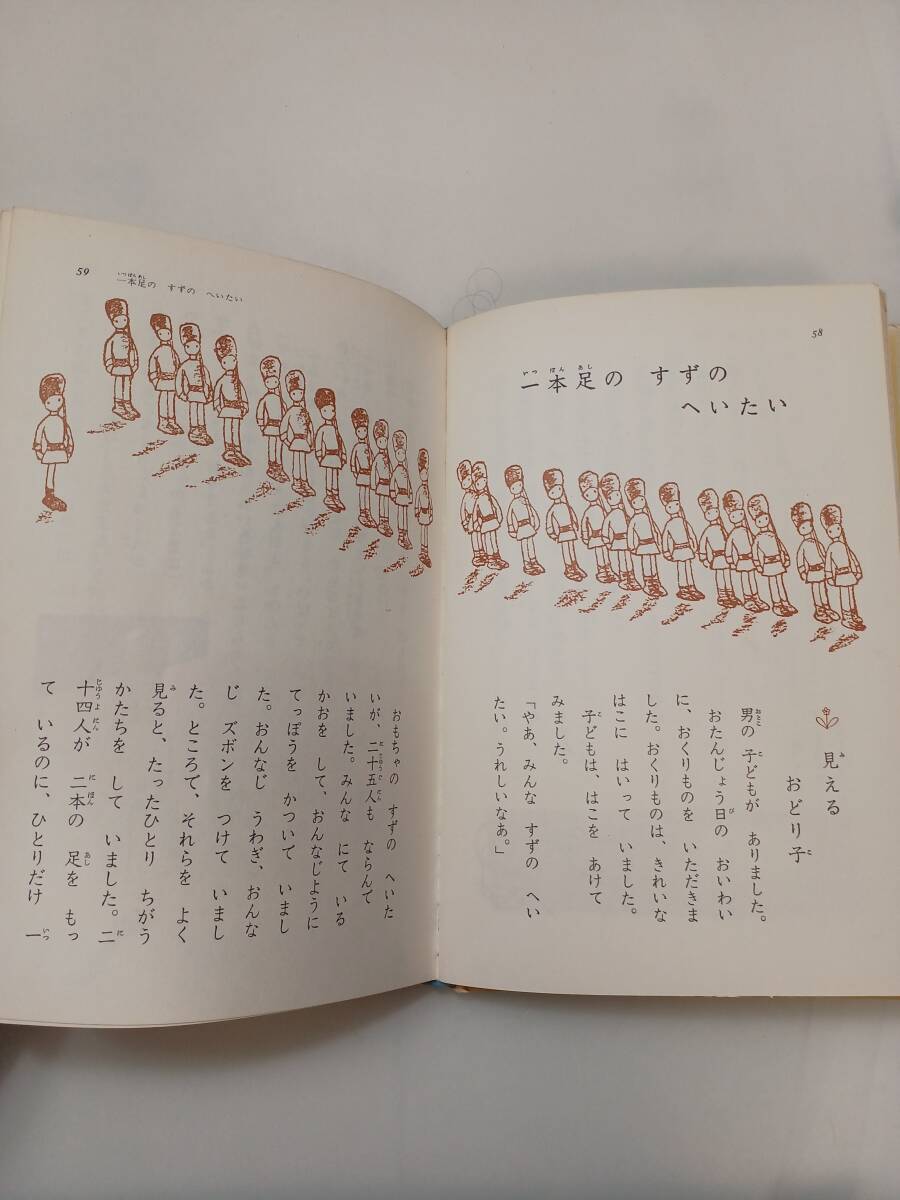 58
一本足の すずの
へいたい
見える
おどり子
男の 子どもが ありました。
おたんじょう日の おいわい
に、おくりものを いただきま
した。おくりものは、きれいな
はこに はいって いました。
子どもは、はこを あけて
みました。
「やあ、みんな すずの へい
たい。うれしいなあ。」
59
一本足の すずの へいたい
おもちゃの すずの へいた
いが、二十五人も ならんで
いました。みんな にて いる
かおを して、おんなじように
てっぽうを かついで いまし
た。おんなじ うわぎ、おんな
じ ズボンを つけて いまし
た。ところで、それらを よく
見ると、たったひとり ちがう
かたちを して いました。二
十四人が 二本の 足を もっ
て いるのに、ひとりだけ 一